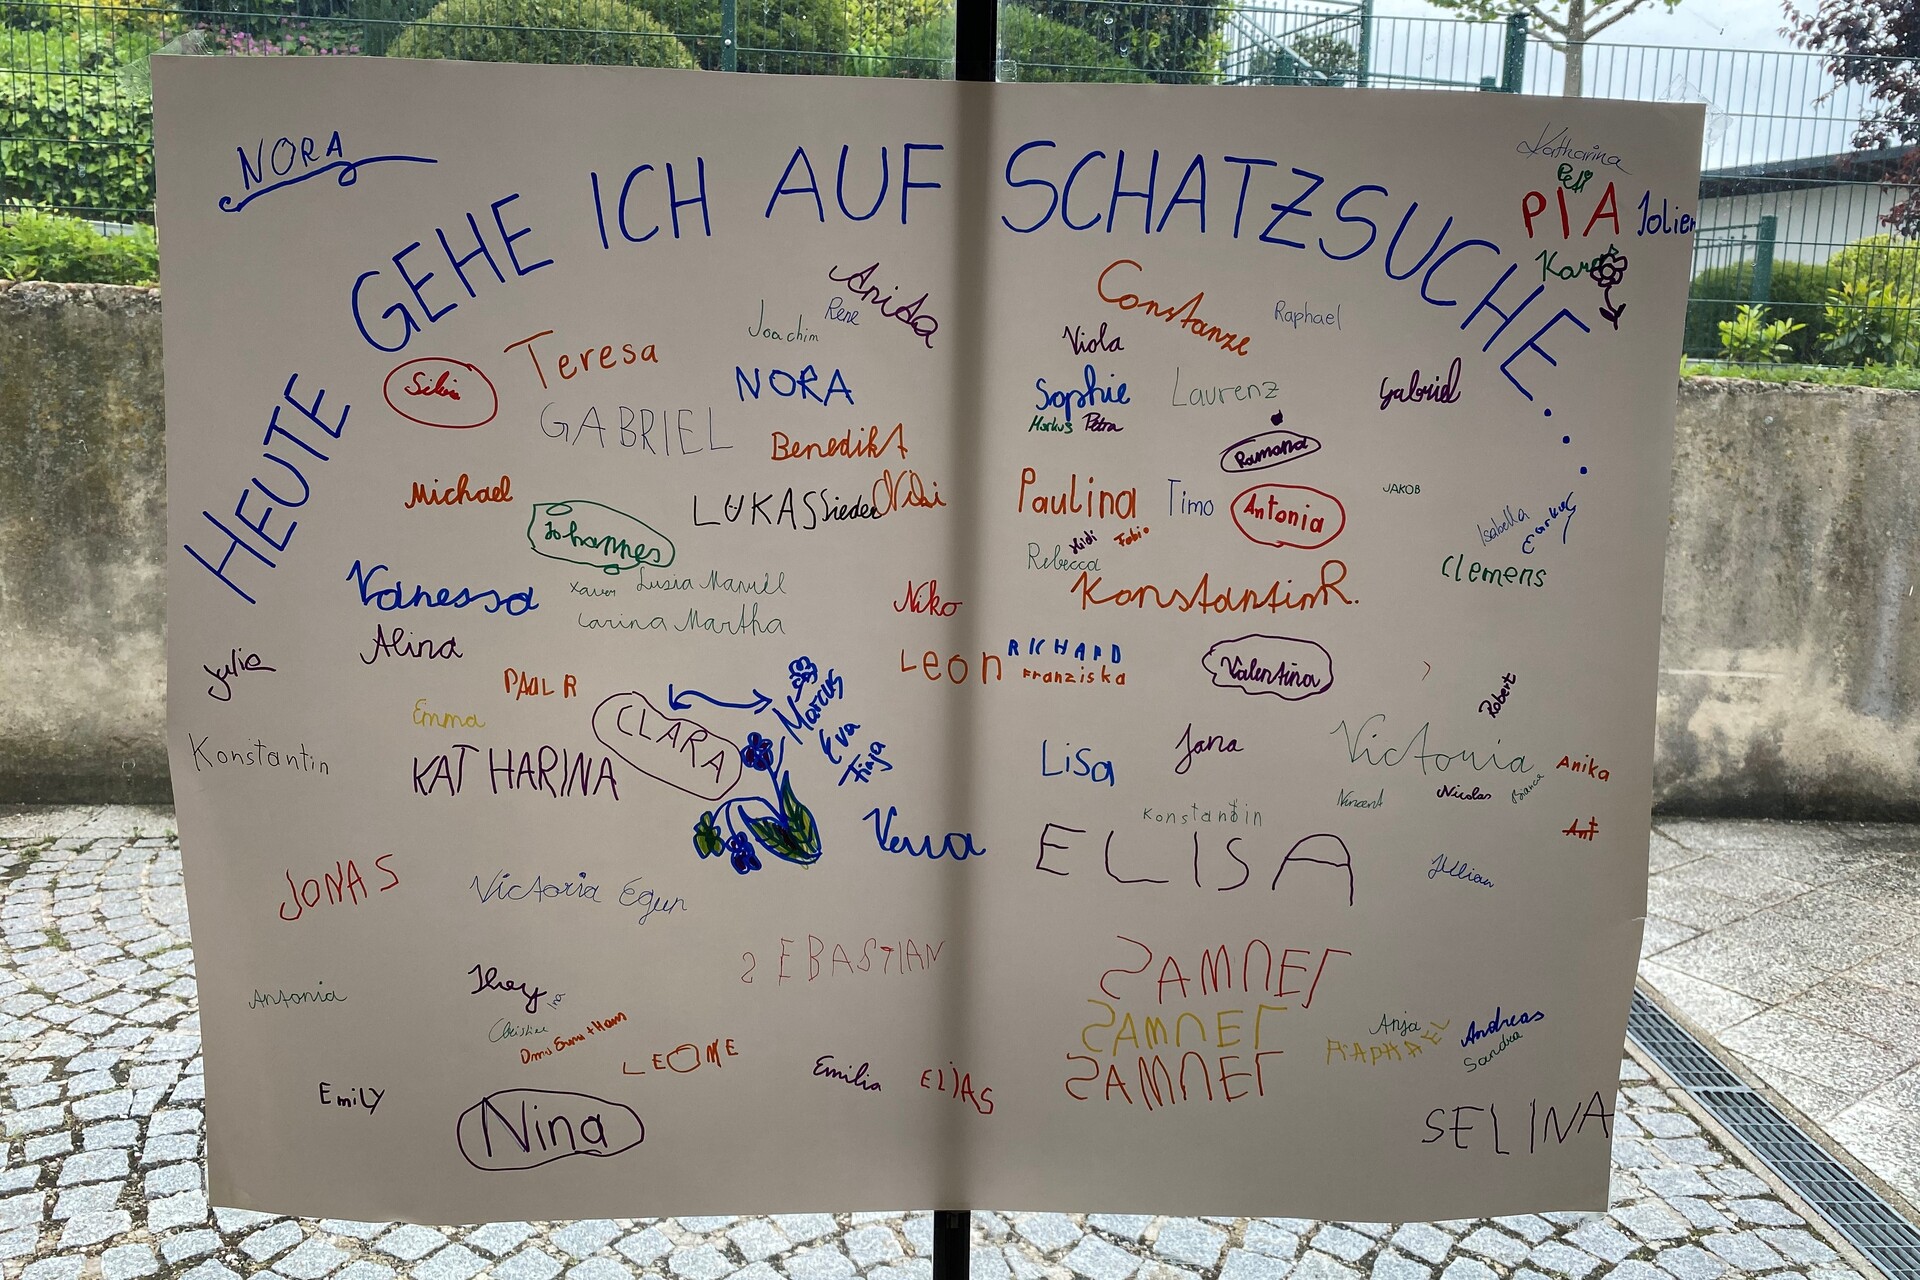 NORA
HEUTE GEHE ICH AUF SCHATZSUCHE...
Katharina
PIA Jolien
Anita
Rene
Joachim
Constanze
Raphael
Viola
Teresa
NORA
Sophie
Laurenz
Gabriel
Markus Petra
GABRIEL
Benedikt
Ramona
Michael
LUKAS
Paulina
Timo
Antonia
JAKOB
Johannes
Isabella
Heidi
Fabio
Rebecca
Clemens
Vanessa
Xaver
Carina Martha
Niko
Konstantin R.
Julia
Alina
Leon
RICHARD
Franziska
Valentina
PAUL R
Robert
Emma
CLARA
Marcus
Eva
Finja
Konstantin
KATHARINA
Lisa
Jana
Victoria
Anika
Vincent
Nicolas
Bianca
Konstantin
Vera
ELISA
Ant
JONAS
Victoria
SEBASTIAN
SAMUEL
Antonia
Ina
Christine
SAMUEL
Anja
Andreas
RAPHAEL
Sandra
LEONIE
Emilia
ELIAS
SAMUEL
EmiLY
Nina
SELINA